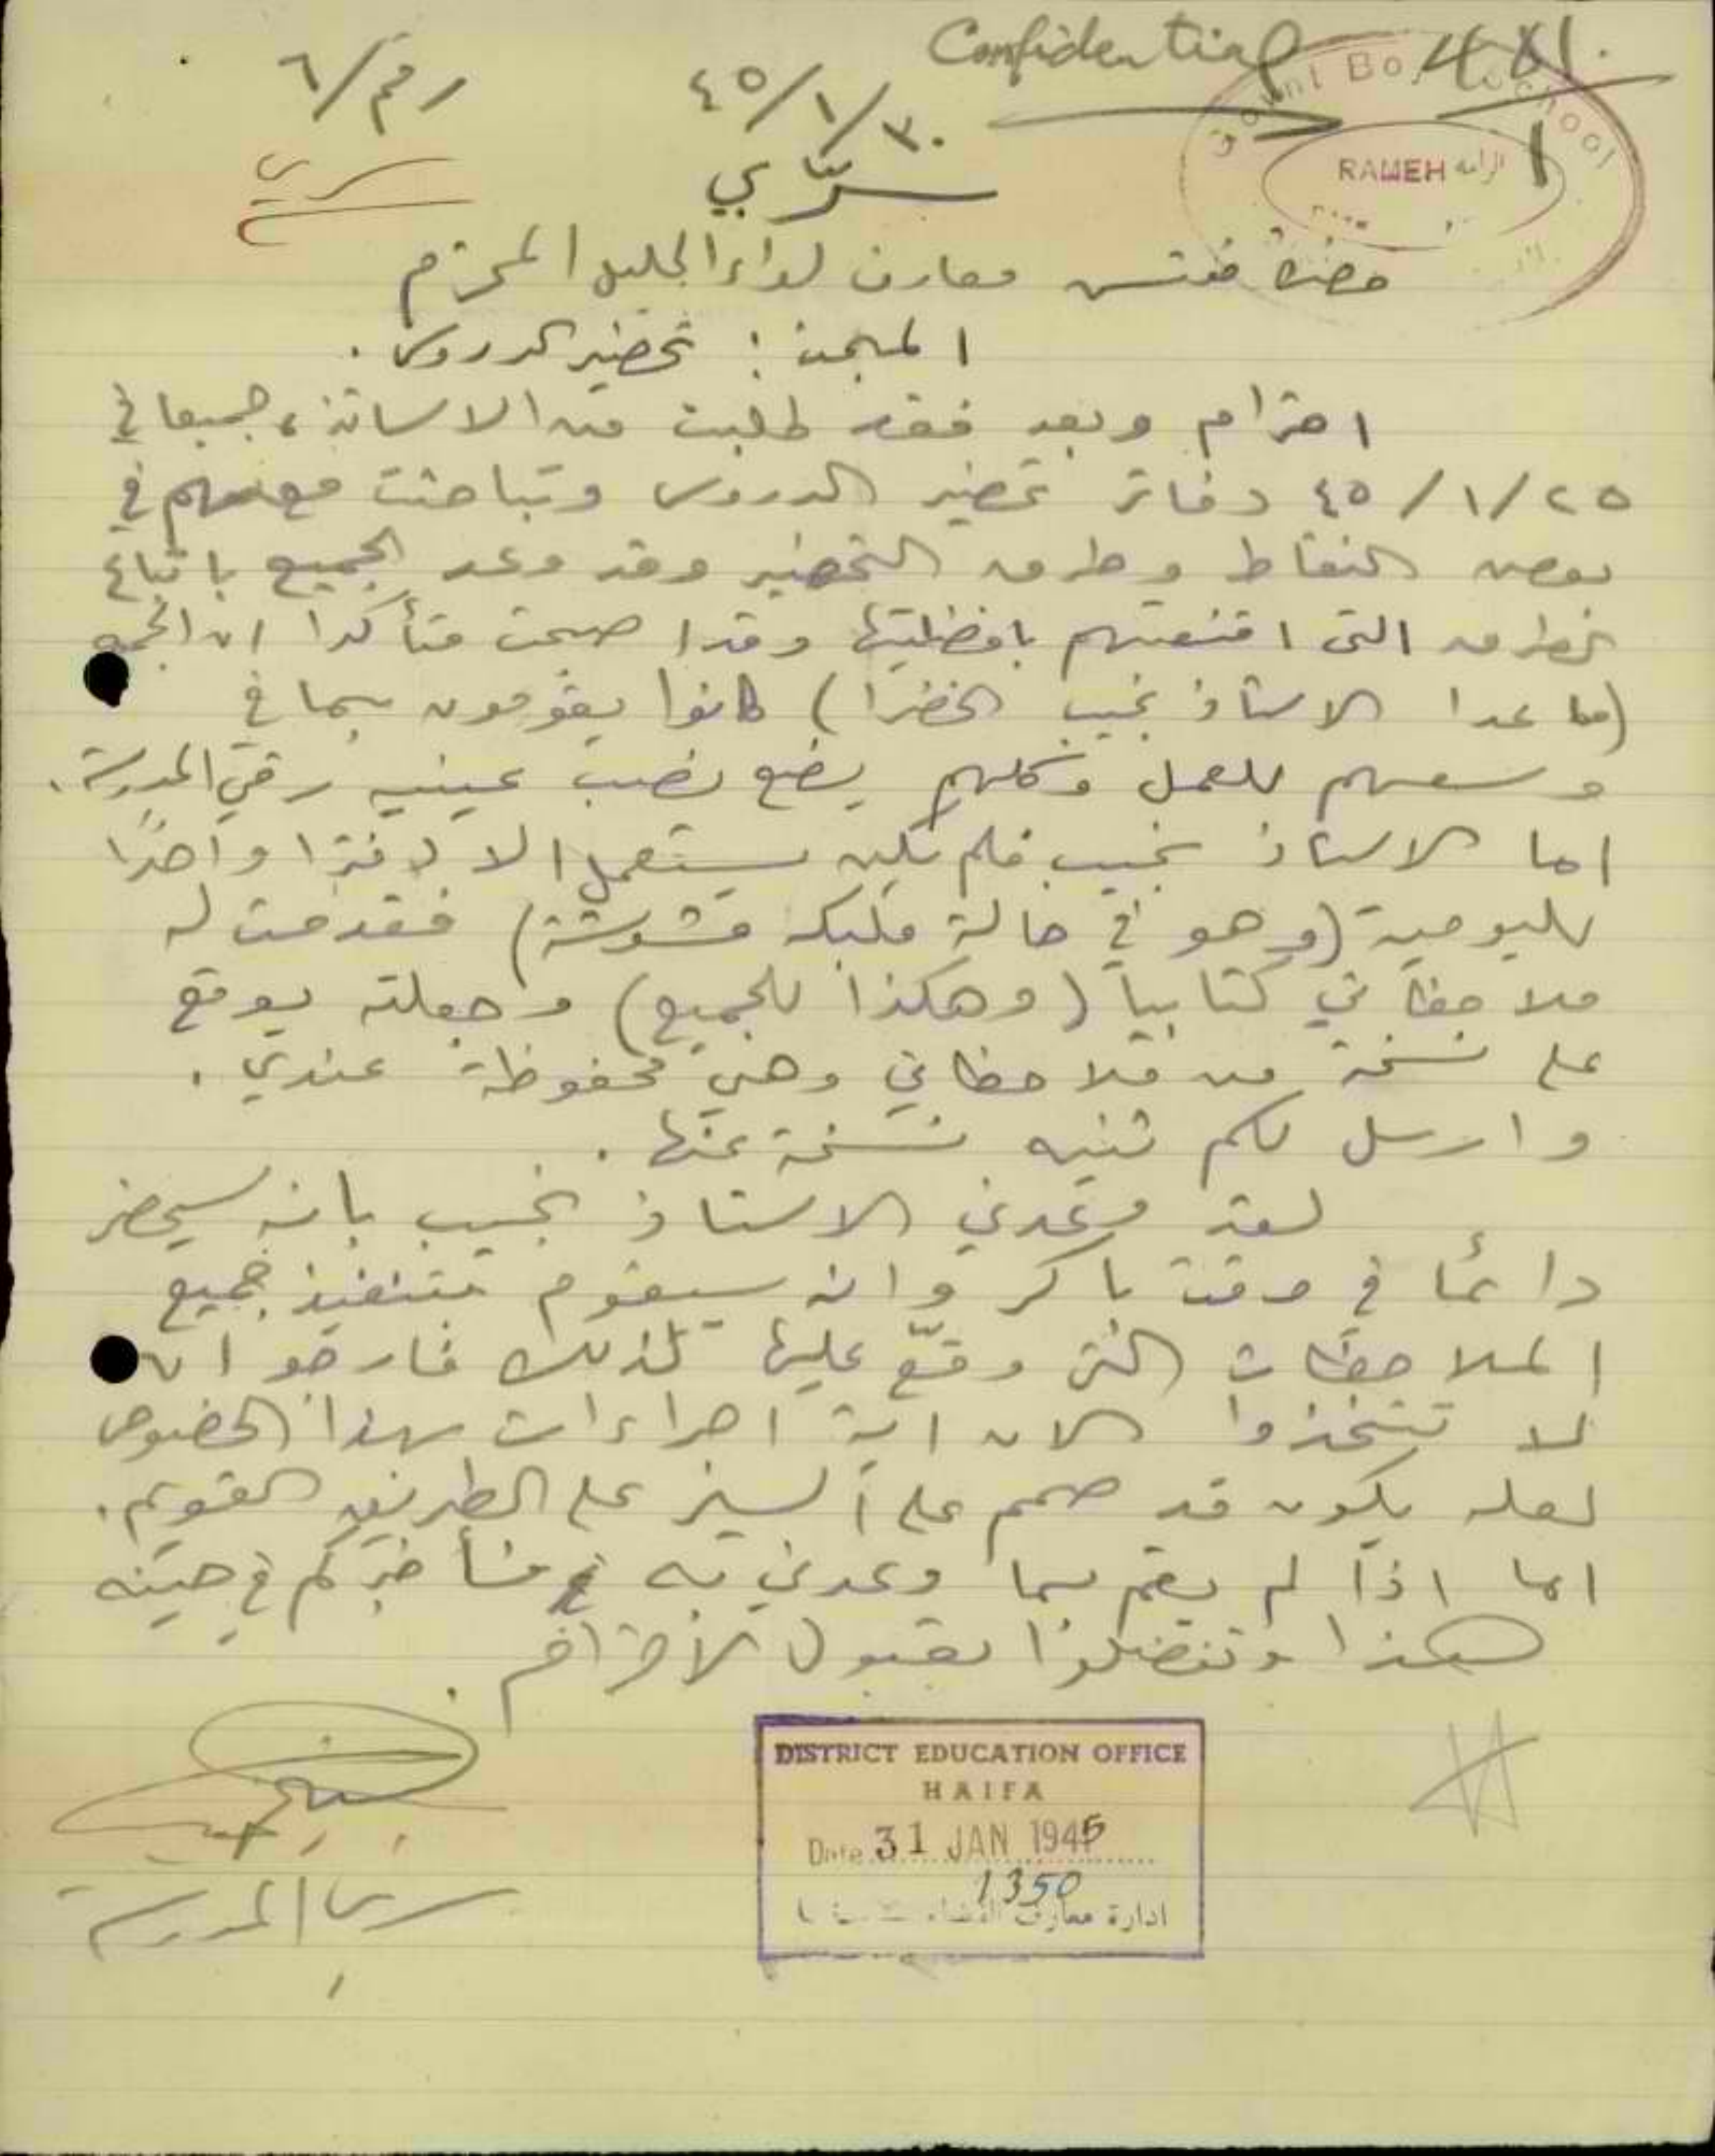 Confidential 481.
رقم/٦
٤٥/١/٣٠
Govnt Boys School
RAMEH الرامه
١
سرّي
سري
حضرة مفتش معارف لواء الجليل المحترم
المبحث : تحضير الدروس .
احترام وبعد فقد طلبت من الاساتذة جميعا في
٤٥/١/٢٥ دفاتر تحضير الدروس وتباحثت معهم في
بعض النقاط وطرق التحضير وقد وعد الجميع باتباع
الطرق التي اقنعتهم بافضليتها وقد اصبحت متأكدا ان الجميع
(ما عدا الاستاذ نجيب الخضرا) كانوا يقومون بما في
وسعهم للعمل وكلهم يضع نصب عينيه رقي المدرسة .
اما الاستاذ نجيب فلم يكن يستعمل الا دفترا واحدًا
لليومية (وهو في حالة ملبكه مشوشة) فقدمت له
ملاحظاتي كتابياً (وهكذا للجميع) وجعلته يوقع
على نسخة من ملاحظاتي وهي محفوظة عندي .
وارسل لكم نسخة عنها .
لقد وعدني الاستاذ نجيب بانه سيحضر
دائمًا في وقت باكر وانه سيقوم بتنفيذ جميع
الملاحظات التي وقّع عليها لذلك فارجو ان
لا تتخذوا الان اية اجراءات بهذا الخصوص
لعله يكون قد صمم على السير على الطريق القويم .
اما اذا لم يقم بما وعدني به فسأخبركم في حينه
هذا وتفضلوا بقبول الاحترام .
DISTRICT EDUCATION OFFICE
HAIFA
Date 31 JAN 1945
1350
ادارة معارف
المدرسة